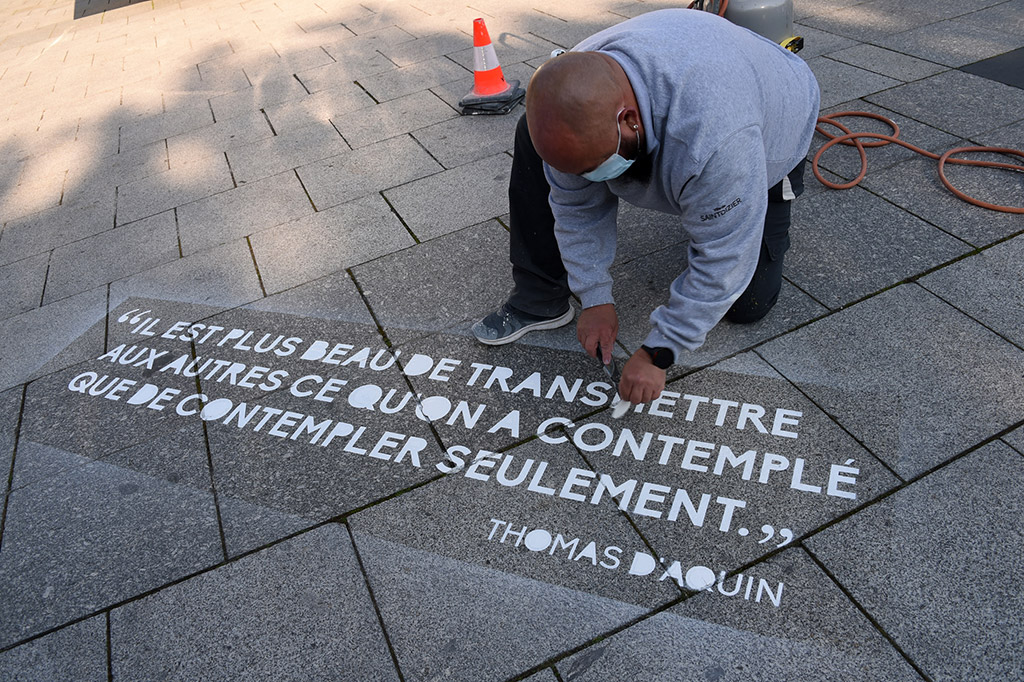 “IL EST PLUS BEAU DE TRANSMETTRE
AUX AUTRES CE QU'ON A CONTEMPLÉ
QUE DE CONTEMPLER SEULEMENT.”
THOMAS D'AQUIN
SAINT·DIZIER